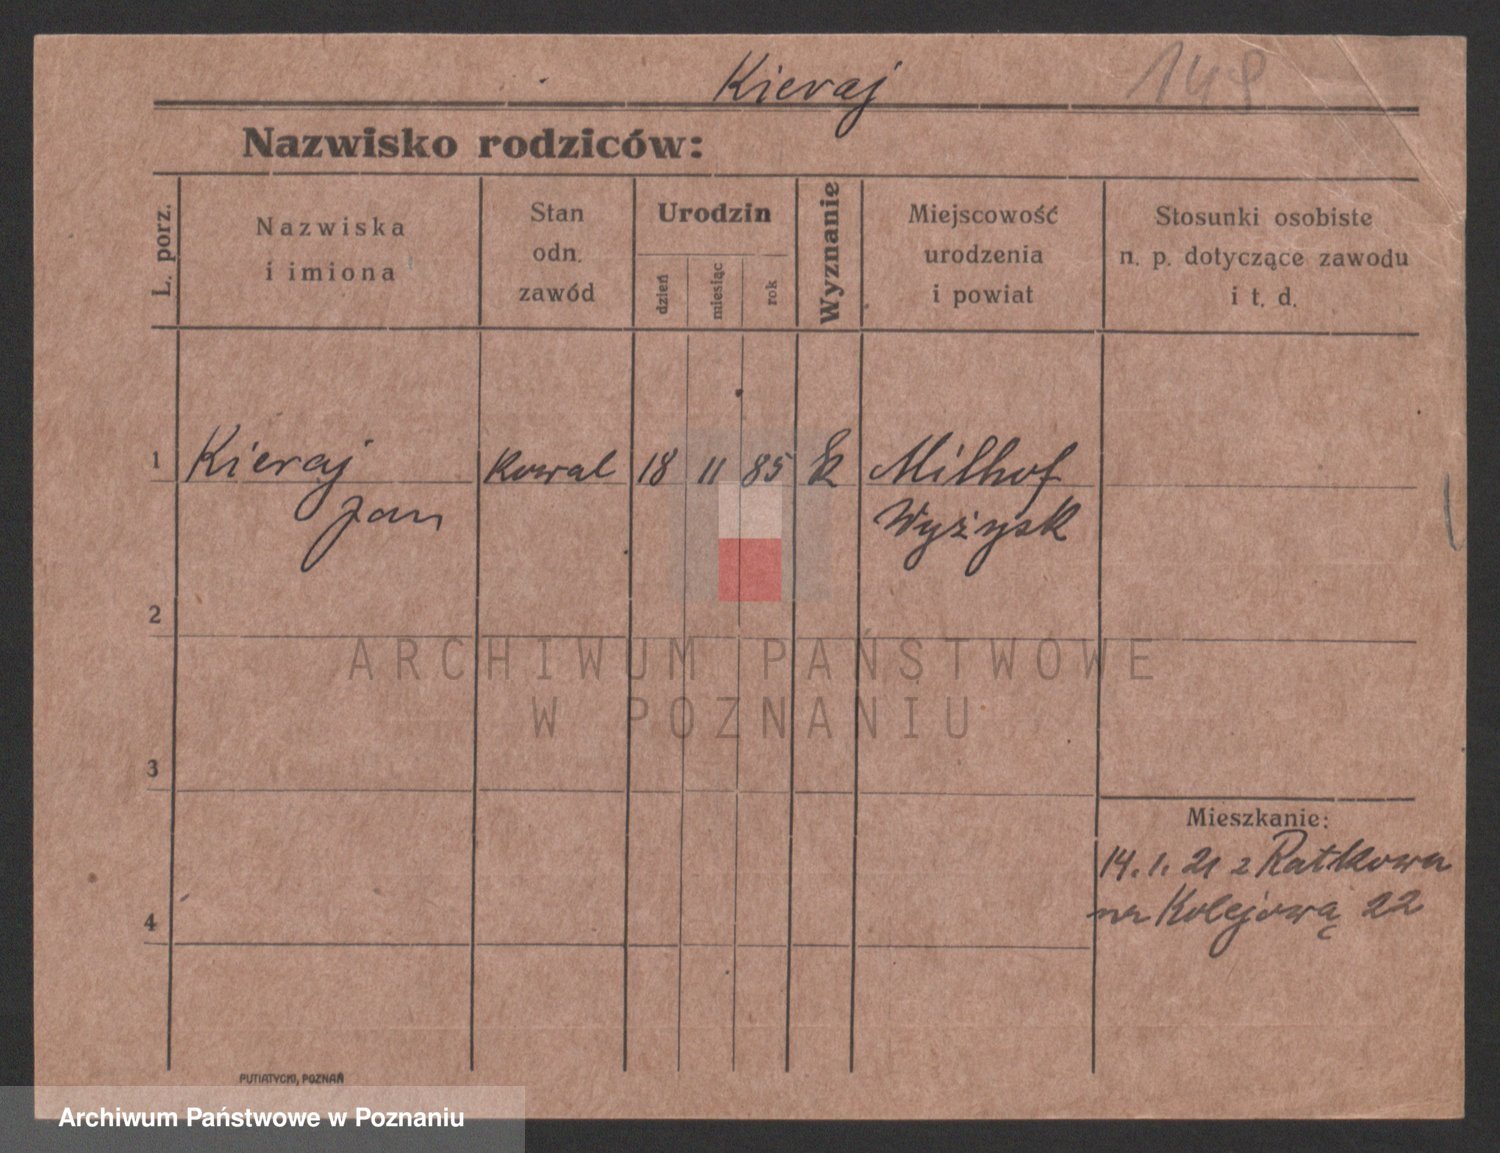 Kieraj
149
Nazwisko rodziców:
L. porz.
Nazwiska
i imiona
Stan
odn.
zawód
Urodzin
dzień
miesiąc
rok
Wyznanie
Miejscowość
urodzenia
i powiat
Stosunki osobiste
n. p. dotyczące zawodu
i t. d.
1 Kieraj kowal 18 11 85 k Milhof
Jan Wyżysk
2
ARCHIWUM PAŃSTWOWE
W POZNANIU
3
Mieszkanie:
14. 1. 21 z Ratkowa
na Kolejową 22
4
PUTIATYCKI, POZNAŃ
Archiwum Państwowe w Poznaniu